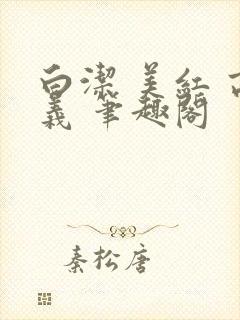 白潔 美紅 高
義 筆趣閣
秦松唐